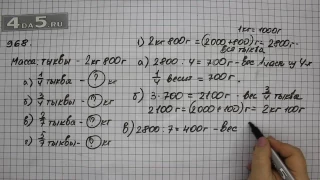 4DA5.RU
968.
Масса тыквы - 2кг 800г
а) 1/4 тыква - ? кг
б) 3/4 тыквы - ? кг
в) 1/7 тыквы - ? кг
г) 5/7 тыквы - ? кг
1кг = 1000г
1) 2кг 800г = (2000+800)г = 2800г -
вся тыква
а) 2800 : 4 = 700г - вес 1 части из 4х
1/4 весит = 700г.
б) 3 · 700 = 2100г - вес 3/4 тыквы
2100г = (2000+100)г = 2кг 100г
в) 2800 : 7 = 400г - вес